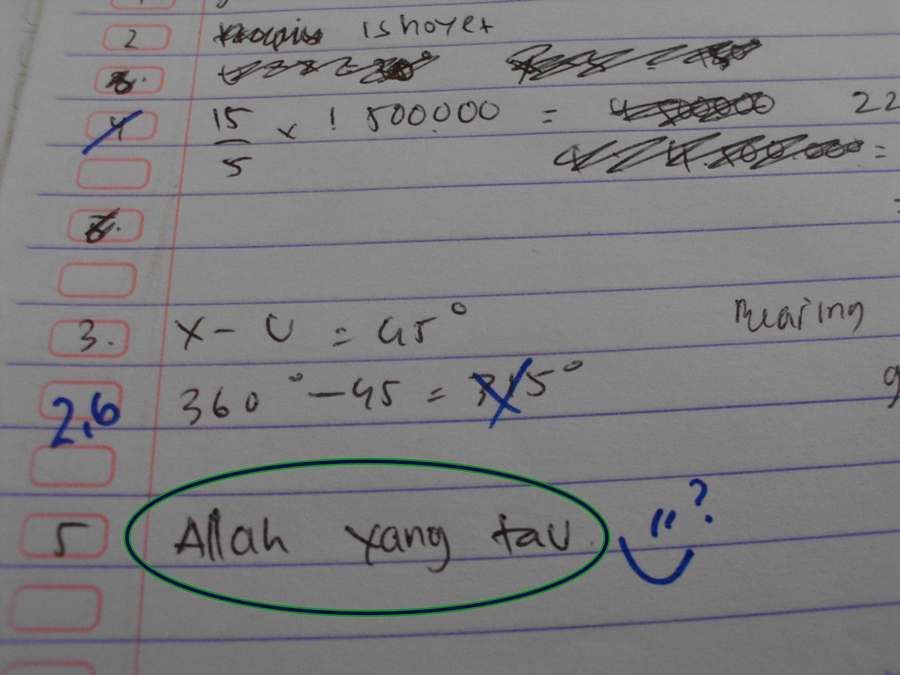 2 ishoyet
4 15/5 x 1 500.000 = 22
=
3. X - U = 45° Bearing
2,6 360° - 45 = 315° g
5 Allah yang tau "?